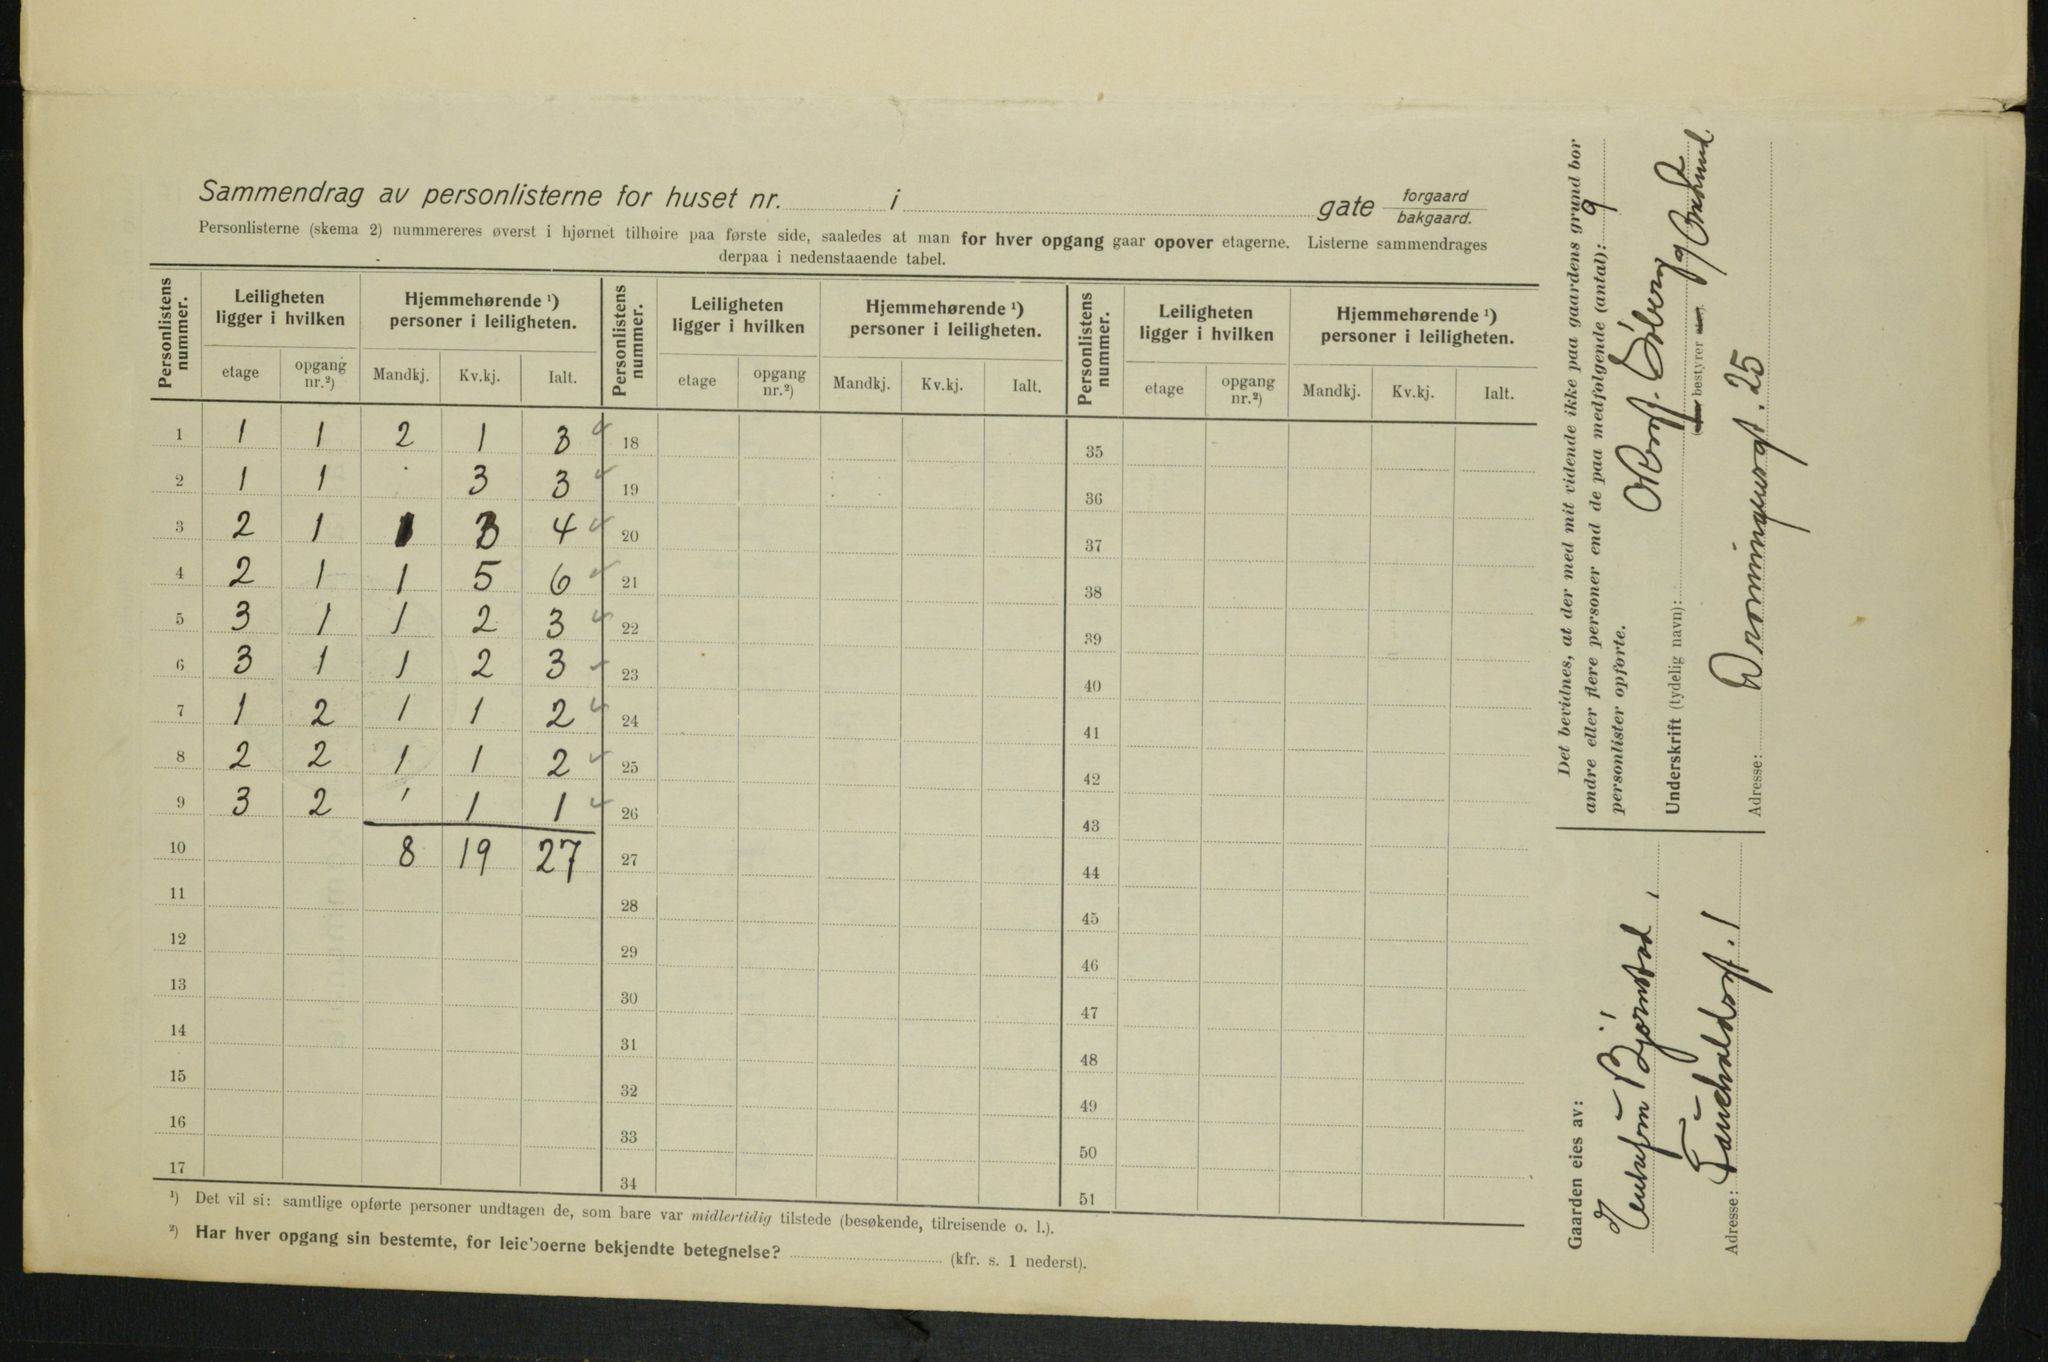 Sammendrag av personlisterne for huset nr. i gate forgaard bakgaard.
Personlisterne (skema 2) nummereres øverst i hjørnet tilhøire paa første side, saaledes at man for hver opgang gaar opover etagerne. Listerne sammendrages
derpaa i nedenstaaende tabel.
Personlistens nummer. Leiligheten ligger i hvilken Hjemmehørende ¹) personer i leiligheten. Personlistens nummer. Leiligheten ligger i hvilken Hjemmehørende ¹) personer i leiligheten. Personlistens nummer. Leiligheten ligger i hvilken Hjemmehørende ¹) personer i leiligheten.
etage opgang nr.²) Mandkj. Kv.kj. Ialt. etage opgang nr.²) Mandkj. Kv.kj. Ialt. etage opgang nr.²) Mandkj. Kv.kj. Ialt.
1 1 1 2 1 3 18 35
2 1 1 3 3 19 36
3 2 1 1 3 4 20 37
4 2 1 1 5 6 21 38
5 3 1 1 2 3 22 39
6 3 1 1 2 3 23 40
7 1 2 1 1 2 24 41
8 2 2 1 1 2 25 42
9 3 2 1 1 26 43
10 8 19 27 27 44
11 28 45
12 29 46
13 30 47
14 31 48
15 32 49
16 33 50
17 34 51
¹) Det vil si: samtlige opførte personer undtagen de, som bare var midlertidig tilstede (besøkende, tilreisende o. l.).
²) Har hver opgang sin bestemte, for leieboerne bekjendte betegnelse? (kfr. s. 1 nederst).
Det bevidnes, at der med mit vidende ikke paa gaardens grund bor
andre eller flere personer end de paa medfølgende (antal): 9
personlister opførte.
Underskrift (tydelig navn):
bestyrer
Adresse: Dronningensgt. 25
Gaarden eies av:
Bjørnstad,
Adresse: